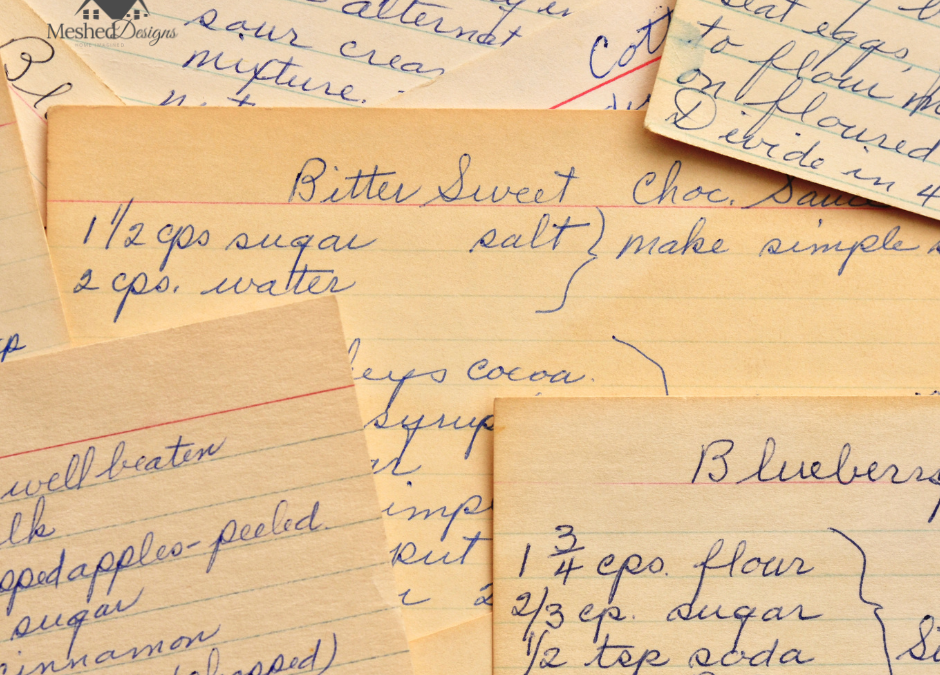 Meshed Designs
HOME INSPIRED
alternat
sour crea
mixture.
Cott
eat eggs,
to flour m
on floured
Divide in 4
Bitter Sweet Choc. Sauce
1 1/2 cps sugar salt } make simple s
2 cps. watter
leys cocoa.
syrup
imp
put
2
well beaten
lk
pped apples - peeled.
sugar
cinnamon
(chopped)
Blueberry
1 3/4 cps. flour
2/3 cp. sugar
1/2 tsp soda
St